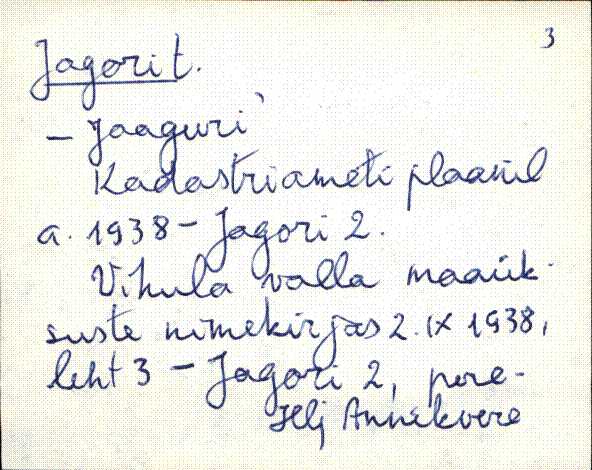 3
Jagorit.
– Jaaguri
Kadastriameti plaanil
a. 1938 – Jagori 2.
Vihula valla maaük-
suste nimekirjas 2. IX 1938,
leht 3 – Jagori 2, pere-
Hlj Annekvere